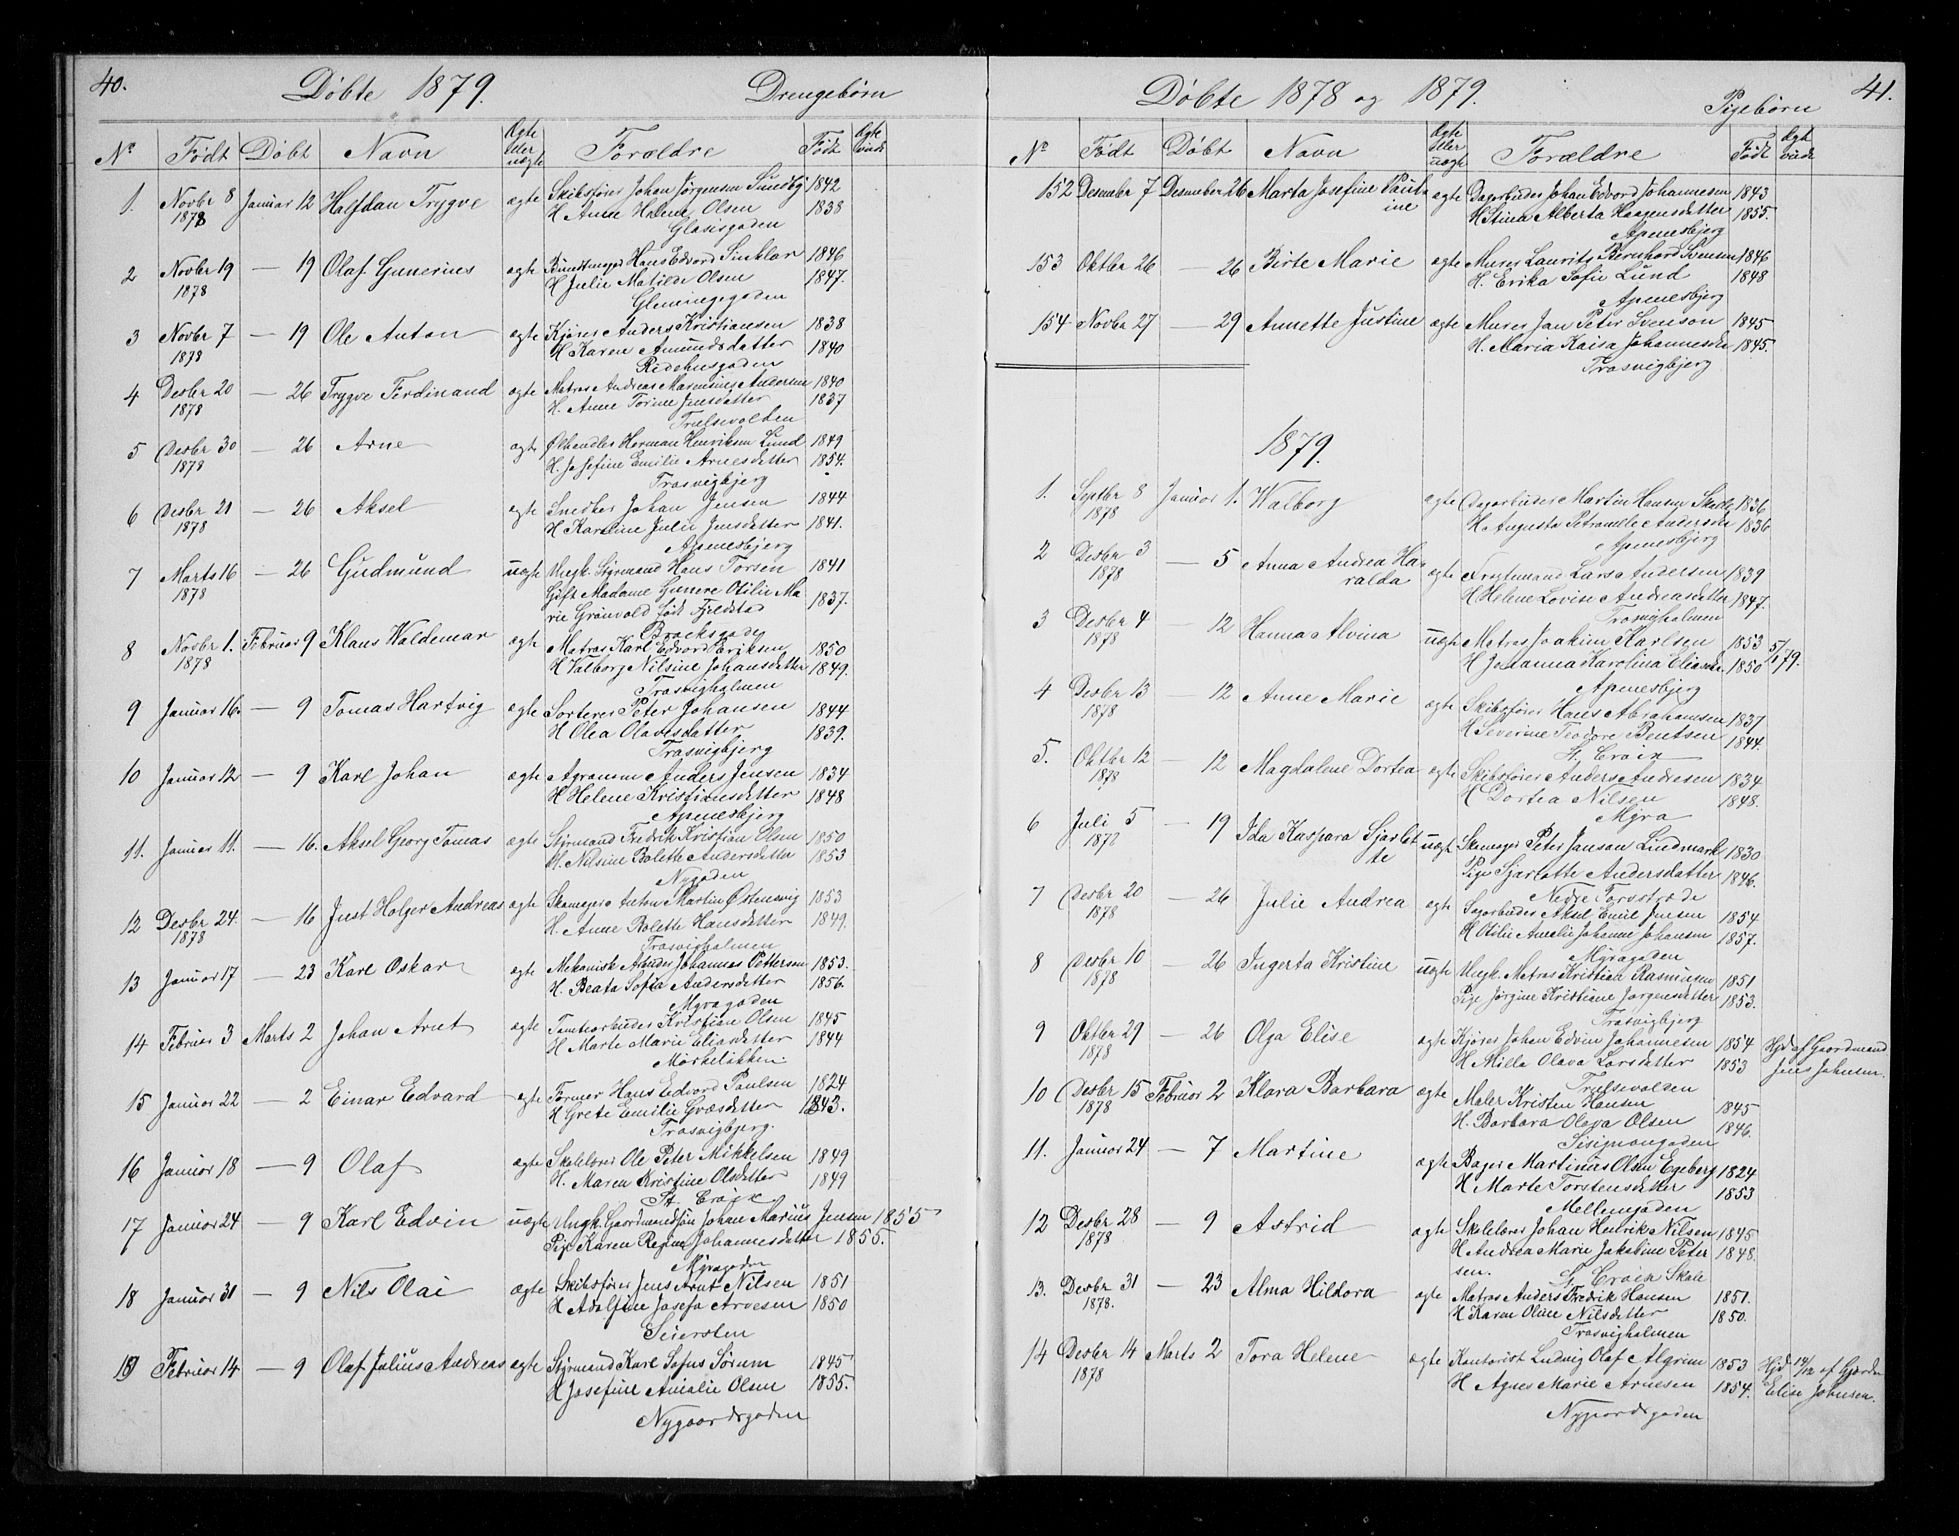 40.
Døbte 1879.
Drengebørn
No Født Døbt Navn Ægte eller uægte Forældre Født Ægte viede
1. Novbr 8 1878 Januar 12 Halfdan Trygve ægte Skibsfører Johan Jørgensen Sundby 1842
H Anne Helene Olsen 1838
Glasisgaden
2 Novbr 19 1878 — 19 Olaf Gunerius ægte Bundtmager Hans Edvard Sinklar 1846
H Julie Matilde Olsen 1847.
Glemingegaden
3 Novbr 7 1878 — 19 Ole Anton ægte Kjører Anders Kristiansen 1838
H Karen Amundsdatter 1840
Ridehusgaden
4 Desbr 20 1878 — 26 Trygve Ferdinand ægte Matros Andreas Andersen 1840
H. Anne Jensdatter 1837
Truelsevolden
5 Desbr 30 1878 — 26 Arne ægte Ølhandler Herman Henriksen Lund 1849
H. Josefine Emilie Arnesdatter 1854.
Trosvigbjerg
6 Desbr 21 1878 — 26 Aksel ægte Snedker Johan Jensen 1844
H Karoline Julie Jensdatter 1841.
Apenesbjerg
7 Marts 16 1878 — 26 Gudmund uægte Ungk. Styrmand Hans Torsen 1841
Gift Madame Gunere Otilie Ma
rie Grønvold født Fjeldstad 1837.
Brocksgade
8 Novbr 1. 1878 Februar 9 Klaus Waldemar ægte Matros Karl Edvard Eriksen 1850
H Valborg Nilsine Johansdatter 1849.
Trosvigholmen
9 Januar 16. — 9 Tomas Hartvig ægte Sorterer Peter Johansen 1844
H Olea Olavesdatter 1839.
Trosvigbjerg
10 Januar 12 — 9 Karl Johan ægte Agronom Anders Jensen 1834
H Helene Kristiansdatter 1848
Apenesbjerg
11. Januar 11. — 16. Aksel Georg Tomas ægte Styrmand Fredrik Kristian Olsen 1850
H. Nilsine Bolette Andersdatter 1853
Nygaden
12 Desbr 24. 1878 — 16 Just Holger Andreas ægte Skomager Anton Martin Østensvig 1853
H. Anne Bolette Hansdatter 1849.
Trosvigholmen
13 Januar 17 — 23 Karl Oskar ægte Mekanisk Arbeider Johannes Petterson 1853.
H. Beata Sofia Andersdatter 1856.
Myragaden
14 Februar 3 Marts 2 Johan Arnt ægte Tomtearbeider Kristian Olsen 1845
H Marte Marie Eliasdatter 1844
Mørkeløkken.
15 Januar 22 — 2 Einar Edvard ægte Former Hans Edvard Paulsen 1824
H Grete Emilie Græsdatter 1843.
Trosvigbjerg.
16 Januar 18 — 9 Olaf ægte Skolelærer Ole Peter Mikkelsen 1849
H. Maren Kristine Olsdatter 1849
St. Croix
17 Januar 24 — 9 Karl Edvin uægte Ungk. Gaardmandsøn Johan Marius Jensen 1855
Pige Karen Regine Johannesdatter 1855.
Myragaden
18 Januar 31 — 9 Nils Olai ægte Skibsfører Jens Arnt Nilsen 1851
H Adolfine Josefa Arvesen 1850
Seiersten
19 Februar 14 — 9 Olaf Julius Andreas ægte Styrmand Karl Sofus Sørum 1845
H Josefine Amalie Olsen 1855.
Nygaardsgaden
41.
Døbte 1878 og 1879.
Pigebørn
No Født Døbt Navn Ægte eller uægte Forældre Født Ægte viede
152 Desember 7 Desember 26 Marta Josefine Paul
ine ægte Dagarbeider Johan Edvard Johannesen 1843
H Stina Alberta Haagensdatter 1855.
Apenesbjerg
153 Oktbr 26 — 26 Birte Marie ægte Murer Laurits Bernhard Svensen 1846
H. Erika Sofie Lund 1848
Apenesbjerg
154 Novbr 27 — 29 Annette Justine ægte Murer Jan Peter Svenson 1845
H. Maria Kaisa Johannesdr 1845.
Trosvigbjerg
1879.
1. Septbr 8 1878 Januar 1. Walborg ægte Dagarbeider Martin Hansen 1836
H. Augusta Petronelle Andersdr 1836
Apenesbjerg
2 Desbr 3 1878 — 5 Anna Andrea Ha
ralda ægte Fragtemand Lars Andersen 1839
H Helene Lovise Andreasdatter 1847.
Trosvigholmen
3 Desbr 4 1878 — 12 Hanna Alvina uægte Matros Joakim Karlsen 1853 5/1 79.
H Johanna Karolina Eliasdr 1850
Apenesbjerg
4 Desbr 13 1878 — 12 Anne Marie ægte Skibsfører Hans Abrahamsen 1837
H Severine Teodore Bentsen 1844.
St. Croix
5. Oktbr 12 1878 — 12 Magdalene Dortea ægte Skibsfører Anders Andresen 1834
H Dortea Nilsen 1848.
Myra
6 Juli 5 1878 — 19 Ida Kaspara Sjarlot
te uægt Skomager Peter Janson Lindmark 1830
Pige Sjarlotte Andersdatter 1846.
Nedre Torsstræde
7 Desbr 20 1878 — 26 Julie Andrea ægt Sagarbeider Aksel Emil Jensen 1854.
H Otilie Amalie Johanne Johansen 1857.
Myragaden
8 Desbr 10 1878 — 26 Ingerta Kristine uægte Ungk. Matros Kristian Rasmusen 1851
Pige Jørgine Kristiane Jørgensdatter 1853.
Trosvigbjerg
9 Oktbr 29 1878 — 26 Olga Elise ægte Kjører Johan Edvin Johannesen 1854 Hjd af Gaardmand
H Milla Olava Larsdatter 1853 Jens Johnsen.
Truelsevolden
10 Desbr 15 1878 Februar 2 Klara Barbara ægte Maler Kristen Hansen 1845
H. Barbara Olava Olsen 1846.
Sisignongaden
11. Januar 24 — 7 Martine ægte Bager Martinus Olsen Egeberg 1824
H Marte Torstensdatter 1853
Mellemgaden
12 Desbr 28 1878 — 9 Astrid ægte Skolelærer Johan Henrik Nilsen 1845
H Andrea Marie Jakobine Peter 1848.
sen. St Croix Skole
13. Desbr 31 1878. — 23 Alma Hildora ægte Matros Anders Fredrik Hansen 1851.
H Karen Oline Nilsdatter 1850.
Trosvigholmen
14 Desbr 14 1878 Marts 2 Tora Helene ægte Kontorist Ludvig Olaf Algrim 1853 Hjd 14/12 af Gjordm
H Agnes Marie Arnesen 1854. Elise Johnsen.
Nygaardsgaden